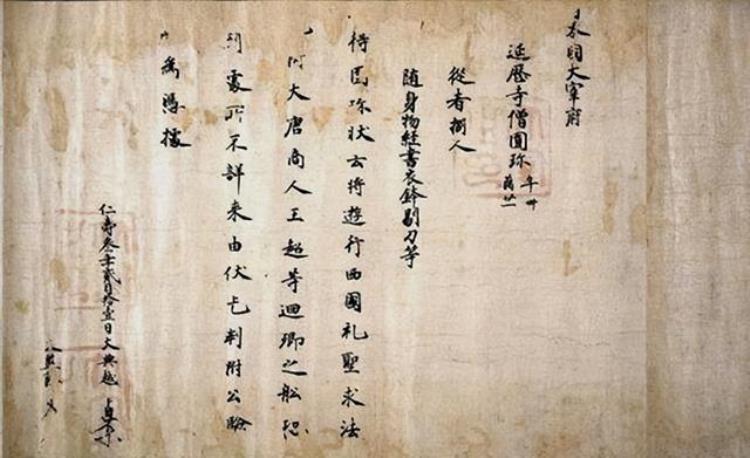 日本國大宰府
延曆寺僧圓珍 年卌 﨟廿一
從者捌人
隨身物經書衣鉢剔刀等
得圓珍狀云將遊行西國礼聖求法
附大唐商人王超等迴鄉之船恐
到處所不詳来由伏乞判附公驗
以為憑據
仁壽叁年貳月拾壹日大典越貞原